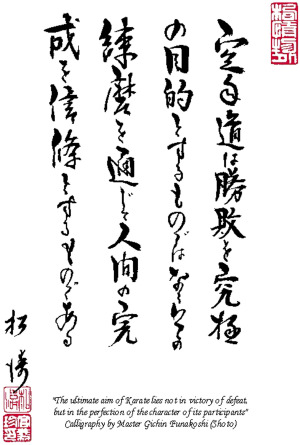 空手道は勝敗を究極
の目的とするものでは
練磨を通じて人間の完
成を信條とするものである
松濤
"The ultimate aim of Karate lies not in victory of defeat,
but in the perfection of the character of its participants"
Calligraphy by Master Gichin Funakoshi (Shoto)